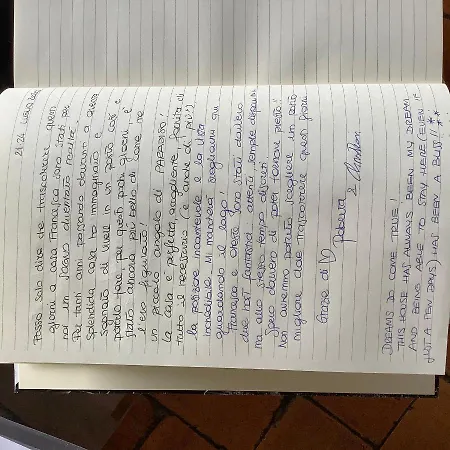 21-24 Luglio
Posso solo dire che trascorrere questi
giorni a casa Francesca sono stati per
noi un sogno diventato realtà.
Per tanti anni passando davanti a questa
splendida casa ho immaginato e
sognato di vivere in un posto così e
poterlo fare, per questi pochi giorni, è
stato ancora più bello di come me
l'ero figurato!
Un piccolo angolo di PARADISO!
La casa è perfetta, accogliente, fornita di
tutto il necessario (e anche di più!)
la posizione incantevole e la vista
incredibile. Mi mancherà svegliarmi qui
guardando il lago!
Francesca e stesso sono stati davvero
due host fantastici, attenti, sempre disponibili
ma allo stesso tempo discreti.
Spero davvero di poter tornare presto!!
Non avremmo potuto scegliere un posto
migliore dove trascorrere questi giorni.
Grazie di ♡
Roberta
&
DREAMS DO COME TRUE!
THIS HOUSE HAS ALWAYS BEEN MY DREAM
AND BEING ABLE TO STAY HERE (EVEN IF
JUST A FEW DAYS) HAS BEEN A BLISS!! **